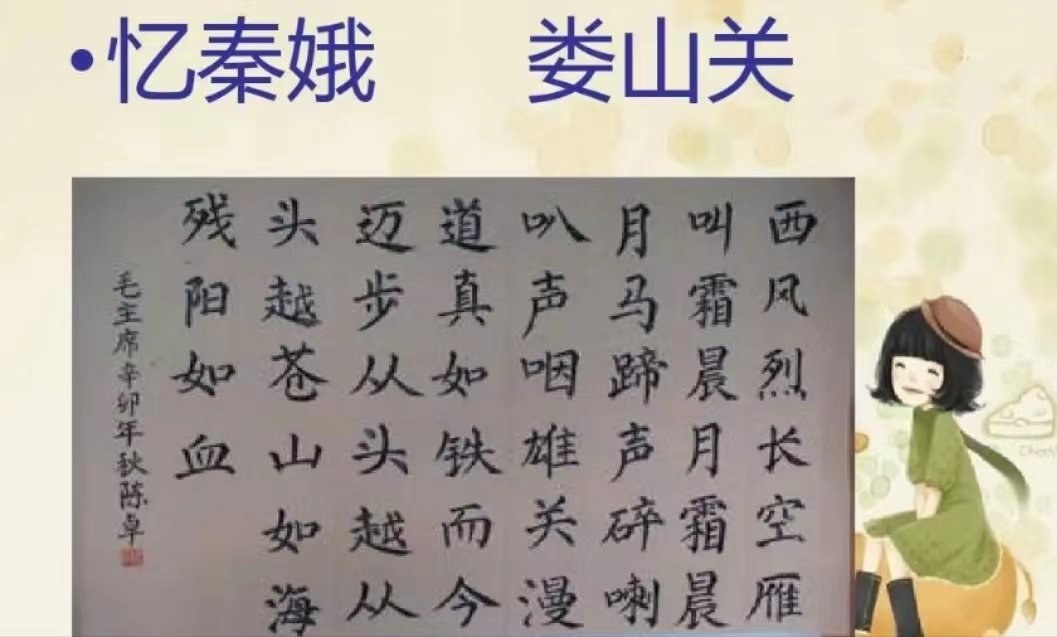 •忆秦娥 娄山关
西风烈长空雁
叫霜晨月霜晨
月马蹄声碎喇
叭声咽雄关漫
道真如铁而今
迈步从头越从
头越苍山如海
残阳如血
毛主席辛卯年秋陈卓